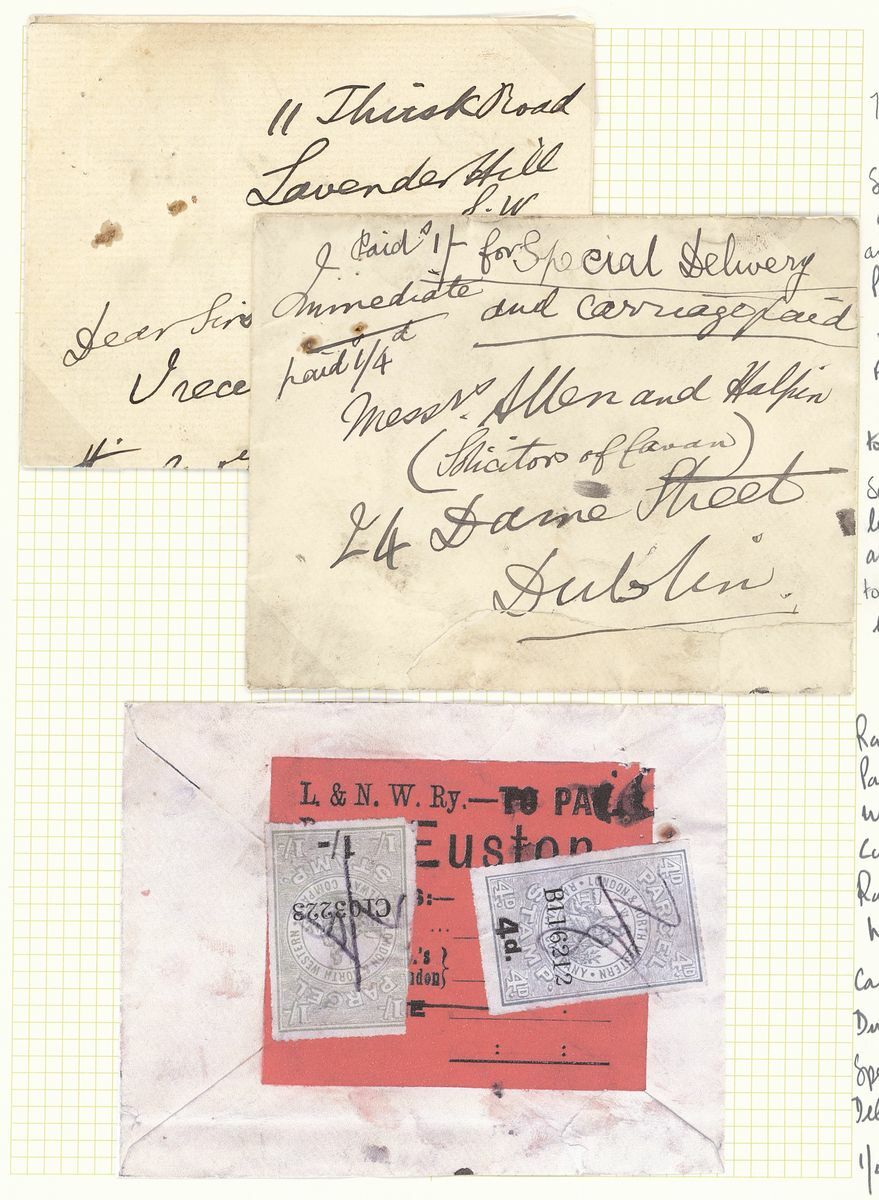 11 Thirsk Road
Lavender Hill
S.W
Dear Sirs
I rece
I Paid 1/- for Special Delivery
Immediate and carriage paid
paid 1/4d
Messrs. Allen and Halpin
(Solicitors of Cavan)
24 Dame Street
Dublin.
L. & N. W. Ry.—TO PA
Euston
S:—
.'s
ndon}
E
1/-
1/-
STAMP
1/-
C103223
LONDON & NORTH WESTERN RAILWAY COMP
1/-
PARCEL
1/-
4D
PARCEL
4D
LONDON & NORTH WESTERN
B116212
4d.
4D
STAMP
4D
to
Ra
Pa
Ra
Ca
Du
Spe
Del